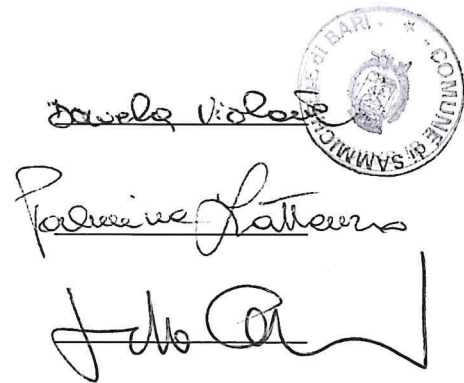 COMUNE di SAMMICHELE di BARI - * -
Daniela Violante
Palmina Lattanzio